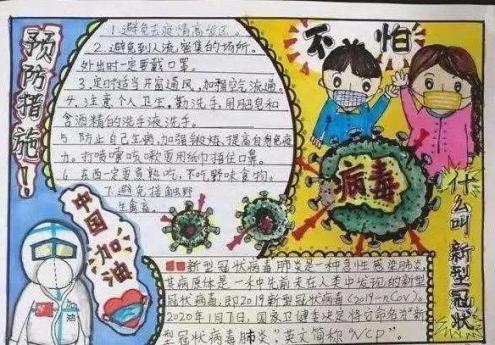 预防措施！
1.避免去疫情高发区。
2.避免到人流密集的场所。
外出时一定要戴口罩。
3.定时适当开窗通风，加强空气流通。
4.注意个人卫生，勤洗手，用肥皂和
含酒精的洗手液洗手。
5 防止自己生病，加强锻炼，提高自身免疫
力。打喷嚏咳嗽要用纸巾捂住口罩。
6 东西一定要煮熟吃，不吃野味食物，
7.避免接触野
生禽畜。
不怕
病毒
中国加油
什么叫新型冠状
新型冠状病毒肺炎是一种急性感染肺炎，
其病原体是一种先前未在人类中发现的新型
冠状病毒，即2019新型冠状病毒（2019-nCoV）。
2020年1月7日，国家卫健委决定将它命名为"新
型冠状病毒肺炎"，英文简称"NCP"。